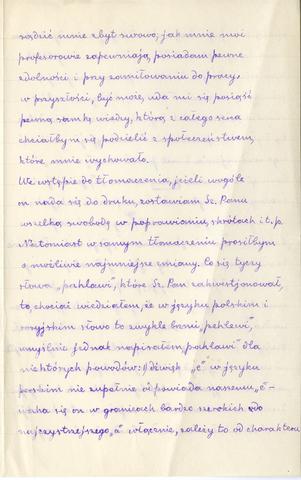 sądzić mnie zbyt surowo; jak mnie moi
profesorowie zapewniają, posiadam pewne
zdolności i przy zamiłowaniu do pracy,
w przyszłości, być może, uda mi się posiąść
pewną sumkę wiedzy, którą z całego serca
chciałbym się podzielić z społeczeństwem,
które mnie wychowało.
We wstępie do tłomaczenia, jeżeli wogóle
on nada się do druku, zostawiam Sz. Panu
wszelką swobodę w poprawianiu, skrótach i t. p.
Natomiast w samym tłomaczeniu prosiłbym
o możliwie najmniejsze zmiany. Co się tyczy
słowa „pahlawi", które Sz. Pan zakwestjonował,
to, chociaż wiedziałem, że w języku polskim i
rosyjskim słowo to zwykle brzmi „pehlewi",
umyślnie jednak napisałem „pahlawi" dla
niektórych powodów: 1) dźwięk „e" w języku
perskim nie zupełnie odpowiada naszemu „e" –
waha się on w granicach bardzo szerokich do
najczystrzejszego „a" włącznie, zależy to od charakteru